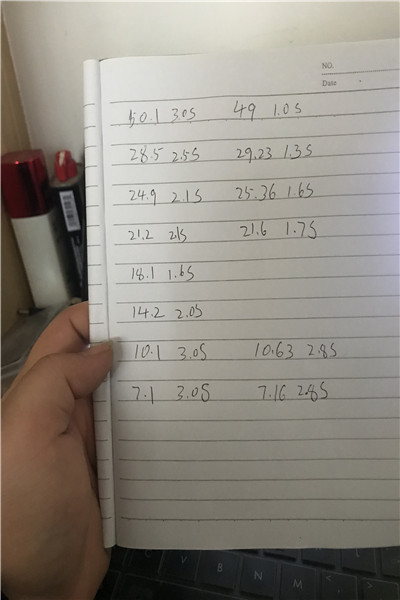 NO.
Date
50.1 3.0S 49 1.0S
28.5 2.5S 29.23 1.3S
24.9 2.1S 25.36 1.6S
21.2 2.1S 21.6 1.7S
18.1 1.6S
14.2 2.0S
10.1 3.0S 10.63 2.8S
7.1 3.0S 7.16 2.8S
B N M